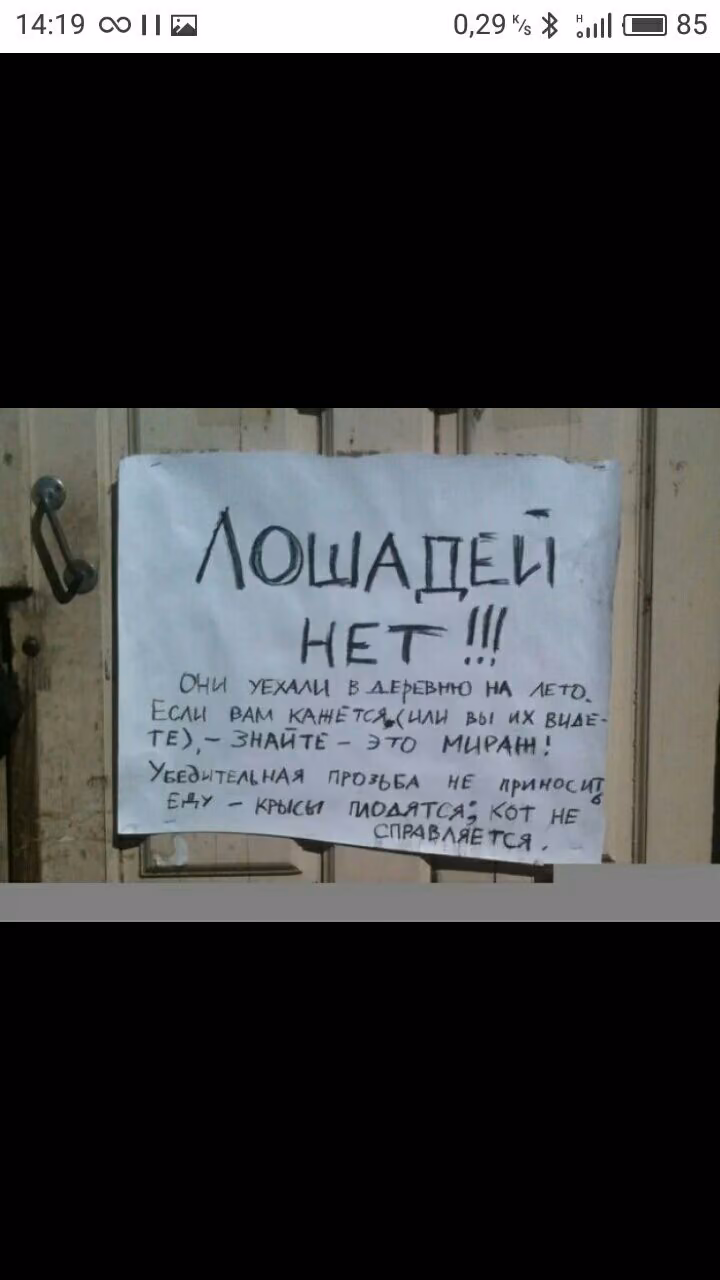 14:19
0,29 K/s
H
85
ЛОШАДЕЙ
НЕТ!!!
ОНИ УЕХАЛИ В ДЕРЕВНЮ НА ЛЕТО.
ЕСЛИ ВАМ КАЖЕТСЯ,(ИЛИ ВЫ ИХ ВИДЕ-
ТЕ),- ЗНАЙТЕ - ЭТО МИРАЖ!
УБЕДИТЕЛЬНАЯ ПРОЗЬБА НЕ ПРИНОСИТЬ
ЕДУ - КРЫСЫ ПЛОДЯТСЯ; КОТ НЕ
СПРАВЛЯЕТСЯ.